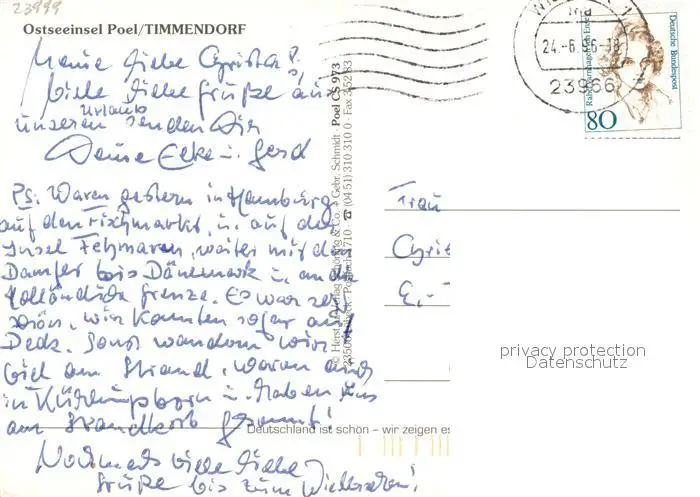 23999
Ostseeinsel Poel/TIMMENDORF
Meine liebe Christa!
Viele liebe Grüße aus
unseren Urlaub senden Dir
Deine Elke u. Gerd
Ps: Waren gestern in Hamburg
auf den Fischmarkt, u. auf der
Insel Fehmarn, weiter mit den
Dampfer bis Dänemark u. an die
Holländische Grenze. Es war sehr
schön, wir konnten sogar auf
Deck. Sonst wandern wir
viel am Strand, waren auch
in Kühlungsborn u. haben uns
am Strandkorb gesonnt!
Nochmals viele liebe
Grüße bis zum Wiedersehen!
Deutschland ist schön – wir zeigen es
Poel CS 973
Gebr. Schmidt
(04 51) 310 310 0 · Fax 3 52 83
24.-6.96-18
23966
Deutsche Bundespost
80
Frau
Christ
E.-
privacy protection
Datenschutz